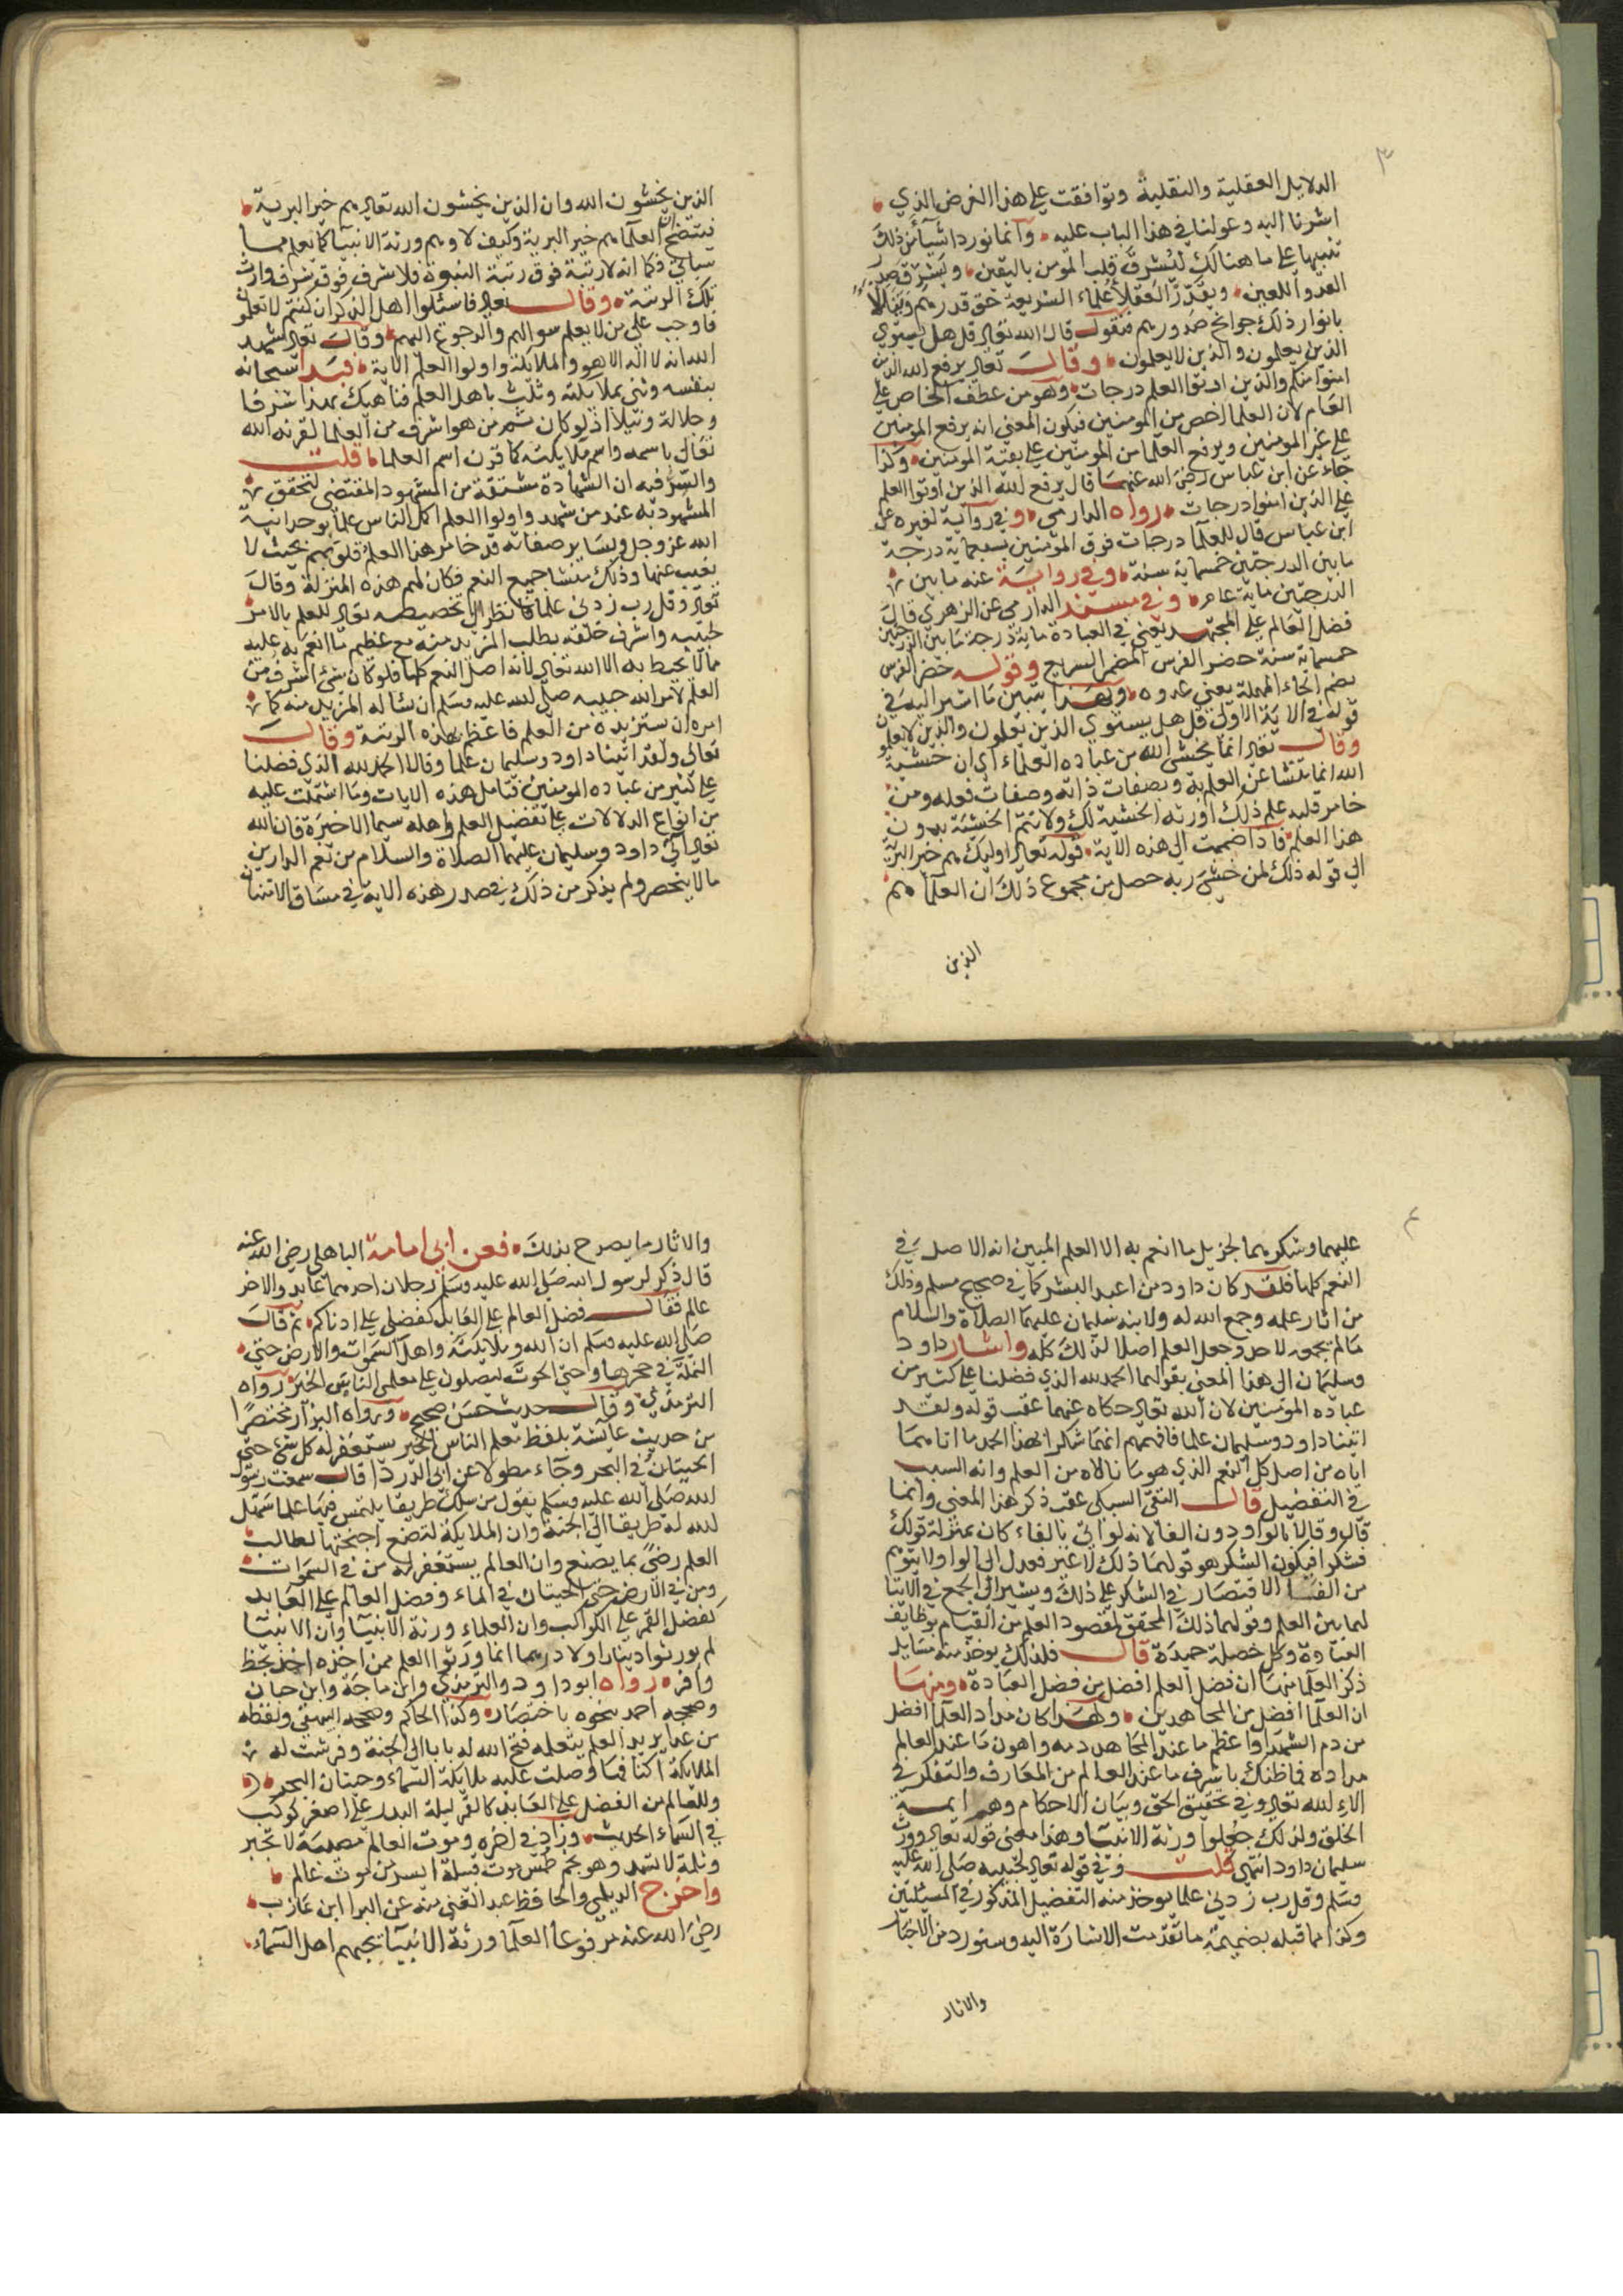 ٣
الدلايل العقلية والنقلية وتوافقت على هذا الغرض الذي
اشرنا اليه وعولنا في هذا الباب عليه وانما نورد شيأ من ذلك
تنبيها على ما هنالك ليشرق قلب المومن باليقين ويشرق صدر
العدو اللعين ويقدر العقلا علماء الشريعة حق قدرهم
بانوار ذلك جوانح صدورهم فنقول قال الله تعالى قل هل يستوي
الذين يعلمون والذين لا يعلمون وقال تعالى يرفع الله الذين
امنوا منكم والذين اوتوا العلم درجات وهو من عطف الخاص على
العام لان العلما اخص من المومنين فيكون المعنى انه يرفع المومنين
على غير المومنين ويرفع العلما من المومنين على بقية المومنين وكذا
جاء عن ابن عباس رضي الله عنهما قال يرفع الله الذين اوتوا العلم
على الذين امنوا درجات رواه الدارمي وفي رواية لغيره عن
ابن عباس قال للعلما درجات فوق المومنين بسبعماية درجة
ما بين الدرجتين خمسماية سنة وفي رواية عنه ما بين
الدرجتين ماية عام وفي مسند الدارمي عن الزهري قال
فضل العالم على المجتهد يعني في العبادة ماية درجة ما بين الدرجتين
خمسماية سنة حضر الفرس المضمر السريع وقوله حضر الفرس
بضم الحاء المهملة يعني عدوه وبهذا يتبين ما اشير اليه في
قوله في الاية الاولى قل هل يستوي الذين يعلمون والذين لا يعلمون
وقال تعالى انما يخشى الله من عباده العلماء اي ان خشية
الله انما تنشا عن العلم به وبصفات ذاته وصفات فعله ومن
خامر قلبه علم ذلك اورثه الخشية لك ولا تتم الخشية بدون
هذا العلم فاذا ضممت الى هذه الاية قوله تعالى اوليك هم خير البرية
الى قوله ذلك لمن خشي ربه حصل من مجموع ذلك ان العلما هم
الذين
الذين يخشون الله وان الذين يخشون الله تعالى هم خير البرية
فيتضح ان العلما هم خير البرية وكيف لا وهم ورثة الانبيا كما يعلم مما
سياتي فكما انه لا رتبة فوق رتبة النبوة فلا شرف فوق شرف وارث
تلك الرتبة وقال تعالى فاسئلوا اهل الذكر ان كنتم لا تعلمون
فاوجب على من لا يعلم سوالهم والرجوع اليهم وقال تعالى شهد
الله انه لا اله الا هو والملائكة واولوا العلم الاية فبدا سبحانه
بنفسه وثنى بملايكته وثلث باهل العلم فناهيك بهذا شرفا
وجلالة ونبلا اذ لو كان ثم من هو اشرف من العلما لقرنه الله
تعالى باسمه واسم ملايكته كما قرن اسم العلما قلت
والسر فيه ان الشهادة مشتقة من المشهود المقتضي لتحقق
المشهود به عند من شهد واولوا العلم اكمل الناس علما بوحدانية
الله عز وجل وبسائر صفاته قد خامر هذا العلم قلوبهم بحيث لا
تغيب عنها وذلك منشا جميع النعم فكان لهم هذه المنزلة وقال
تعالى وقل رب زدني علما فانظر الى تخصيصه تعالى للعلم بالامر
لحبيبه واشرف خلقه بطلب المزيد منه مع عظيم ما انعم به عليه
مما لا يحيط به الا الله تعالى لانه اصل النعم كلها فلو كان شئ اشرف من
العلم لامر الله حبيبه صلى الله عليه وسلم ان يساله المزيد منه كما
امره ان يستزيده من العلم فاعظم بهذه الرتبة وقال
تعالى ولقد اتينا داود وسليمان علما وقالا الحمد لله الذي فضلنا
على كثير من عباده المومنين فتامل هذه الايات وما اشتملت عليه
من انواع الدلالات على تفضيل العلم واهله سيما الاخيرة فان الله
تعالى اتى داود وسليمان عليهما الصلاة والسلام من نعم الدارين
ما لا ينحصر ولم يذكر من ذلك في صدر هذه الاية في مساق الامتنان
٤
عليهما وشكرهما لجزيل ما انعم به الا العلم المبين انه الاصل في
النعم كلها فلقد كان داود من اعبد البشر كما في صحيح مسلم وذلك
من اثار علمه وجمع الله له ولابنه سليمان عليهما الصلاة والسلام
ما لم يجمعه لاحد وجعل العلم اصلا لذلك كله واشار داود
وسليمان الى هذا المعنى بقولهما الحمد لله الذي فضلنا على كثير من
عباده المومنين لان الله تعالى حكاه عنهما عقب قوله ولقد
اتينا داود وسليمان علما فافهم انهما شكرا بهذا الحمد ما اتاهما
اياه من اصل كل النعم الذي هو ما نالاه من العلم وانه السبب
في التفضيل قال التقي السبكي عقب ذكر هذا المعنى وانما
قال وقالا بالواو دون الفا لانه لو اتى بالفاء كان بمنزلة قولك
فشكرا فيكون الشكر هو قولهما ذلك لا غير فعدل الى الواو ولا يتوهم
من الفا الاقتصار في الشكر على ذلك ويشير الى الجمع في الاتيا
لهما بين العلم وقولهما ذلك المحقق لمقصود العلم من القيام بوظايف
العبادة وكل خصلة حميدة قال فلذلك يوخذ منه مسايل
ذكر العلما منها ان فضل العلم افضل من فضل العبادة ومنها
ان العلما افضل من المجاهدين ولهذا كان مداد العلما افضل
من دم الشهداء واعظم ما عند المجاهد دمه واهون ما عند العالم
مداده فما ظنك باشرف ما عند العالم من المعارف والتفكر في
الاء الله تعالى وفي تحقيق الحق وبيان الاحكام وهداية
الخلق ولذلك جعلوا ورثة الانبيا وهذا معنى قوله تعالى وورث
سليمان داود انتهى قلت وفي قوله تعالى لنبيه صلى الله عليه
وسلم وقل رب زدني علما يوخذ منه التفضيل المذكور في المسئلتين
وكذا مما قبله بضميمة ما تقدمت الاشارة اليه وسنورد من الاخبار
والاثار
والاثار ما يصرح بذلك فعن ابي امامة الباهلي رضي الله عنه
قال ذكر لرسول الله صلى الله عليه وسلم رجلان احدهما عابد والاخر
عالم فقال فضل العالم على العابد كفضلي على ادناكم ثم قال
صلى الله عليه وسلم ان الله وملايكته واهل السموات والارض حتى
النملة في جحرها وحتى الحوت ليصلون على معلمي الناس الخير رواه
الترمذي وقال حديث حسن صحيح ورواه البزار مختصرا
من حديث عايشة بلفظ معلم الناس الخير يستغفر له كل شئ حتى
الحيتان في البحر وجاء مطولا عن ابي الدردا قال سمعت رسول
الله صلى الله عليه وسلم يقول من سلك طريقا يلتمس فيها علما سهل
الله له طريقا الى الجنة وان الملايكة لتضع اجنحتها لطالب
العلم رضى بما يصنع وان العالم يستغفر له من في السموات
ومن في الارض حتى الحيتان في الماء وفضل العالم على العابد
كفضل القمر على الكواكب وان العلماء ورثة الانبيا وان الانبيا
لم يورثوا دينارا ولا درهما انما ورثوا العلم فمن اخذه اخذ بحظ
وافر رواه ابو داود والترمذي وابن ماجة وابن حبان
وصححه احمد بنحوه باختصار وكذا الحاكم وصححه البيهقي ولفظه
من غدا يريد العلم يتعلمه فتح الله له بابا الى الجنة وفرشت له
الملايكة اكنافها وصلت عليه ملايكة السماء وحيتان البحر
وللعالم من الفضل على العابد كالقمر ليلة البدر على اصغر كوكب
في السماء الحديث وزاد في اخره وموت العالم مصيبة لا تجبر
وثلمة لا تسد وهو نجم طمس موت قبيلة ايسر من موت عالم
واخرج الديلمي والحافظ عبد الغني عنه عن البرا ابن عازب
رضي الله عنه مرفوعا العلما ورثة الانبيا يحبهم اهل السماء